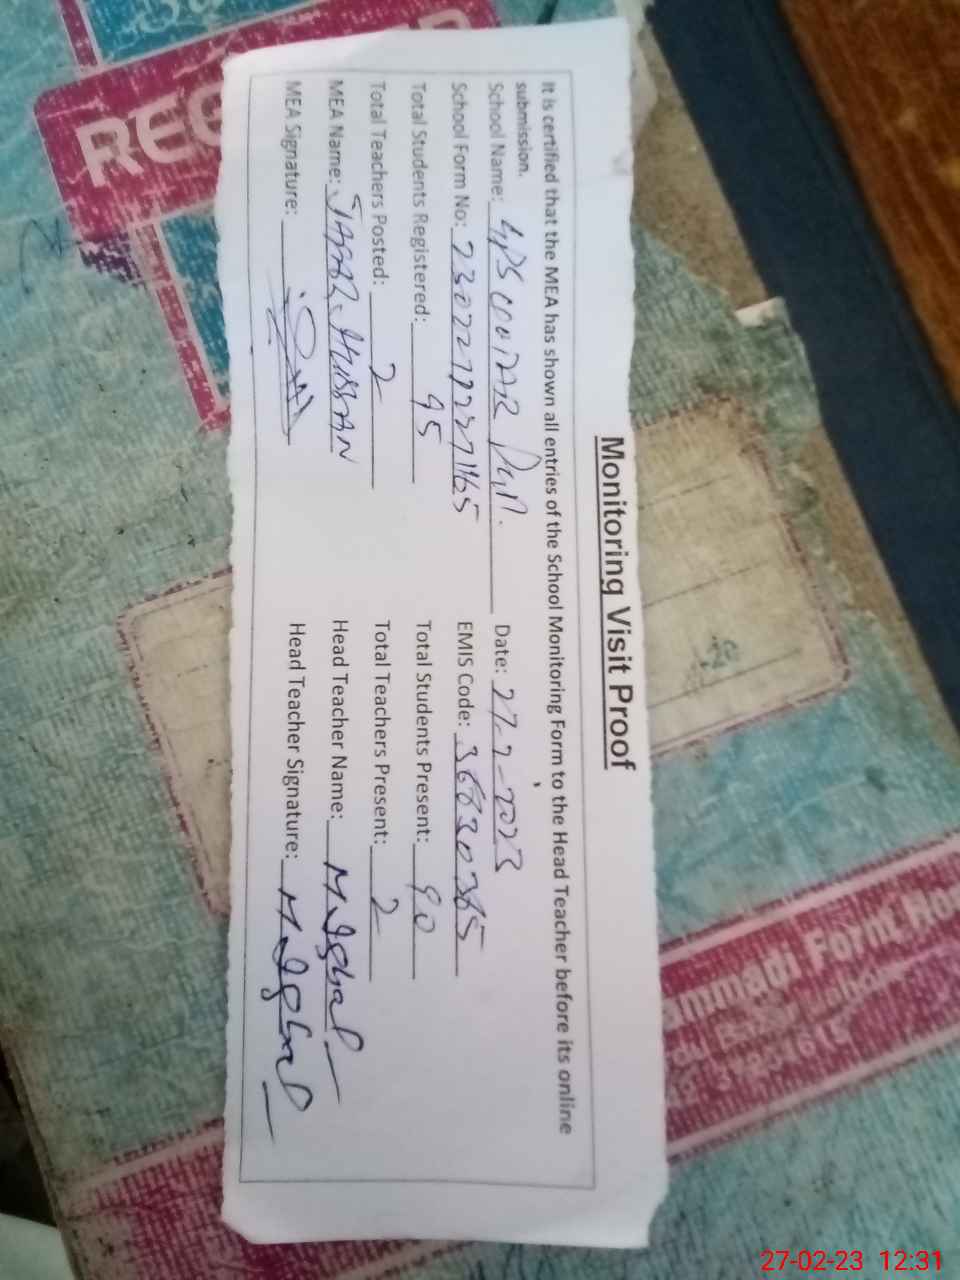 Monitoring Visit Proof
It is certified that the MEA has shown all entries of the School Monitoring Form to the Head Teacher before its online
submission.
School Name: GPS Date: 27-2-2023
School Form No: EMIS Code: 36830365
Total Students Registered: 95 Total Students Present: 90
Total Teachers Posted: 2 Total Teachers Present: 2
MEA Name: JAFAR HUSSAN Head Teacher Name: M Iqbal
MEA Signature: Head Teacher Signature: M Iqbal
REG
27-02-23 12:31